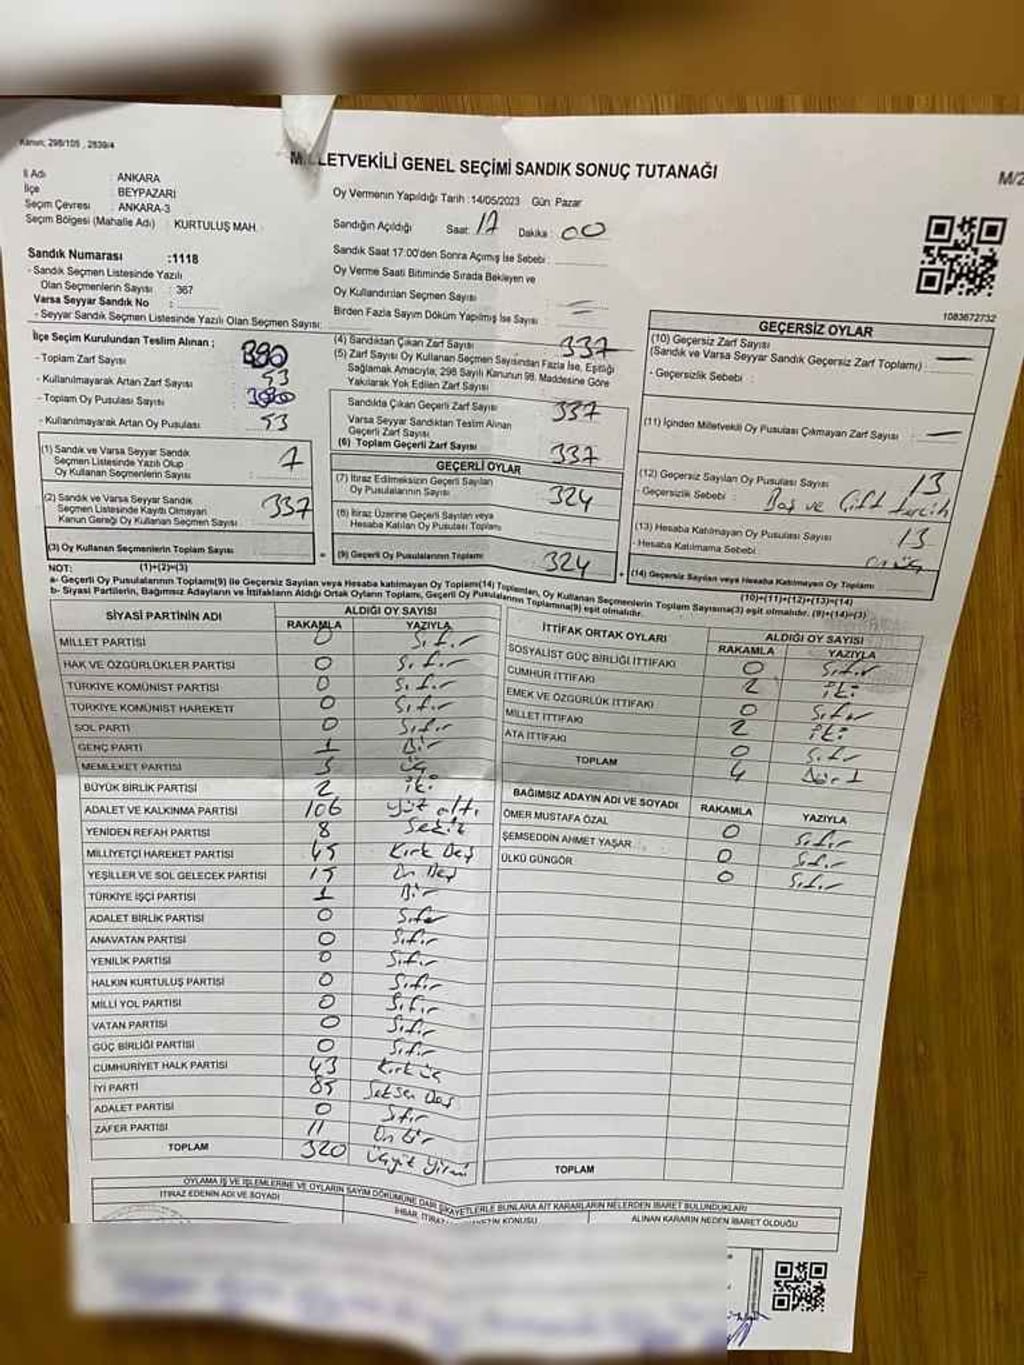 Kanun; 298/105 , 2839/4
MİLLETVEKİLİ GENEL SEÇİMİ SANDIK SONUÇ TUTANAĞI
M/2
İl Adı : ANKARA
İlçe : BEYPAZARI
Seçim Çevresi : ANKARA-3
Seçim Bölgesi (Mahalle Adı) : KURTULUŞ MAH.
Oy Vermenin Yapıldığı Tarih : 14/05/2023 Gün: Pazar
Sandığın Açıldığı Saat: 17 Dakika : 00
Sandık Saat 17:00'den Sonra Açımış İse Sebebi :
Oy Verme Saati Bitiminde Sırada Bekleyen ve
Oy Kullandırılan Seçmen Sayısı :
Birden Fazla Sayım Döküm Yapılmış İse Sayısı :
Sandık Numarası :1118
- Sandık Seçmen Listesinde Yazılı
Olan Seçmenlerin Sayısı : 367
Varsa Seyyar Sandık No :
- Seyyar Sandık Seçmen Listesinde Yazılı Olan Seçmen Sayısı:
1083672732
İlçe Seçim Kurulundan Teslim Alınan ;
- Toplam Zarf Sayısı : 390
- Kullanılmayarak Artan Zarf Sayısı : 53
- Toplam Oy Pusulası Sayısı :
- Kullanılmayarak Artan Oy Pusulası : 53
(1) Sandık ve Varsa Seyyar Sandık
Seçmen Listesinde Yazılı Olup
Oy Kullanan Seçmenlerin Sayısı :
(2) Sandık ve Varsa Seyyar Sandık
Seçmen Listesinde Kayıtlı Olmayan
Kanun Gereği Oy Kullanan Seçmen Sayısı : 337
(3) Oy Kullanan Seçmenlerin Toplam Sayısı
(1)+(2)=(3)
(4) Sandıktan Çıkan Zarf Sayısı : 337
(5) Zarf Sayısı Oy Kullanan Seçmen Sayısından Fazla İse, Eşitliği
Sağlamak Amacıyla; 298 Sayılı Kanunun 98. Maddesine Göre
Yakılarak Yok Edilen Zarf Sayısı
Sandıkta Çıkan Geçerli Zarf Sayısı : 337
Varsa Seyyar Sandıktan Teslim Alınan
Geçerli Zarf Sayısı
(6) Toplam Geçerli Zarf Sayısı : 337
GEÇERLİ OYLAR
(7) İtiraz Edilmeksizin Geçerli Sayılan
Oy Pusulalarının Sayısı : 324
(8) İtiraz Üzerine Geçerli Sayılan veya
Hesaba Katılan Oy Pusulası Toplamı
(9) Geçerli Oy Pusulalarının Toplamı : 324
GEÇERSİZ OYLAR
(10) Geçersiz Zarf Sayısı
(Sandık ve Varsa Seyyar Sandık Geçersiz Zarf Toplamı) :
- Geçersizlik Sebebi :
(11) İçinden Milletvekili Oy Pusulası Çıkmayan Zarf Sayısı : —
(12) Geçersiz Sayılan Oy Pusulası Sayısı : 13
- Geçersizlik Sebebi : Boş ve Çift tercih
(13) Hesaba Katılmayan Oy Pusulası Sayısı : 13
- Hesaba Katılmama Sebebi : onüç
(14) Geçersiz Sayılan veya Hesaba Katılmayan Oy Toplamı :
(10)+(11)+(12)+(13)=(14)
NOT:
a- Geçerli Oy Pusulalarının Toplamı(9) ile Geçersiz Sayılan veya Hesaba katılmayan Oy Toplamı(14) Toplamları, Oy Kullanan Seçmenlerin Toplam Sayısına(3) eşit olmalıdır. (9)+(14)=(3)
b- Siyasi Partilerin, Bağımsız Adayların ve İttifakların Aldığı Ortak Oyların Toplamı, Geçerli Oy Pusulalarının Toplamına(9) eşit olmalıdır.
SİYASİ PARTİNİN ADI ALDIĞI OY SAYISI
RAKAMLA YAZIYLA
MİLLET PARTİSİ 0 Sıfır
HAK VE ÖZGÜRLÜKLER PARTİSİ 0 Sıfır
TÜRKİYE KOMÜNİST PARTİSİ 0 Sıfır
TÜRKİYE KOMÜNİST HAREKETİ 0 Sıfır
SOL PARTİ 0 Sıfır
GENÇ PARTİ 1 Bir
MEMLEKET PARTİSİ 3 Üç
BÜYÜK BİRLİK PARTİSİ 2 iki
ADALET VE KALKINMA PARTİSİ 106 yüz altı
YENİDEN REFAH PARTİSİ 8 Sekiz
MİLLİYETÇİ HAREKET PARTİSİ 45 Kırk Beş
YEŞİLLER VE SOL GELECEK PARTİSİ 15 On Beş
TÜRKİYE İŞÇİ PARTİSİ 1 Bir
ADALET BİRLİK PARTİSİ 0 Sıfır
ANAVATAN PARTİSİ 0 Sıfır
YENİLİK PARTİSİ 0 Sıfır
HALKIN KURTULUŞ PARTİSİ 0 Sıfır
MİLLİ YOL PARTİSİ 0 Sıfır
VATAN PARTİSİ 0 Sıfır
GÜÇ BİRLİĞİ PARTİSİ 0 Sıfır
CUMHURİYET HALK PARTİSİ 43 Kırk üç
İYİ PARTİ 85 Seksen Beş
ADALET PARTİSİ 0 Sıfır
ZAFER PARTİSİ 11 On bir
TOPLAM 320 Üçyüz yirmi
İTTİFAK ORTAK OYLARI ALDIĞI OY SAYISI
RAKAMLA YAZIYLA
SOSYALİST GÜÇ BİRLİĞİ İTTİFAKI 0 Sıfır
CUMHUR İTTİFAKI 2 iki
EMEK VE ÖZGÜRLÜK İTTİFAKI 0 Sıfır
MİLLET İTTİFAKI 2 iki
ATA İTTİFAKI 0 Sıfır
TOPLAM 4 Dört
BAĞIMSIZ ADAYIN ADI VE SOYADI RAKAMLA YAZIYLA
ÖMER MUSTAFA ÖZAL 0 Sıfır
ŞEMSEDDİN AHMET YAŞAR 0 Sıfır
ÜLKÜ GÜNGÖR 0 Sıfır
TOPLAM
OYLAMA İŞ VE İŞLEMLERİNE VE OYLARIN SAYIM DÖKÜMÜNE DAİR ŞİKAYETLERLE BUNLARA AİT KARARLARIN NELERDEN İBARET BULUNDUKLARI
İTİRAZ EDENİN ADI VE SOYADI
İHBAR, İTİRAZ
KONUSU
ALINAN KARARIN NEDEN İBARET OLDUĞU